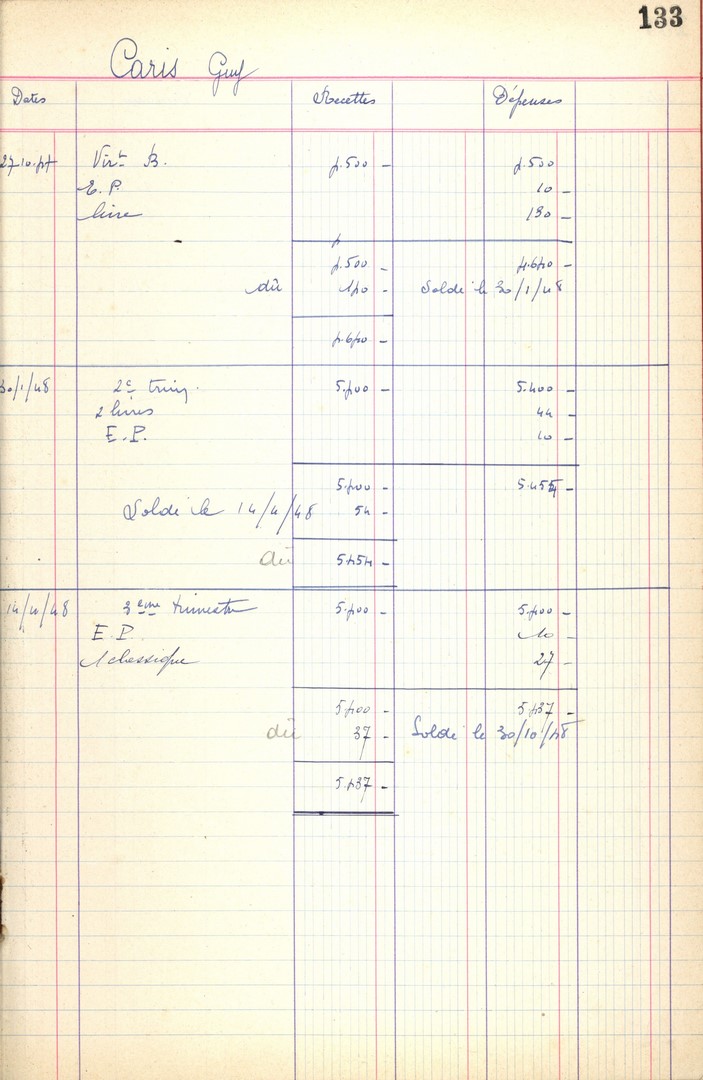 133
Caris Guy
Dates Recettes Dépenses
27.10.47 Virt B. 4.500 - 4.500
E.P. 10 -
livre 130 -
4.500 - 4.640 -
dû 140 - Soldé le 30/1/48
4.640 -
30/1/48 2e trim. 5.400 - 5.400 -
2 livres 44 -
E.P. 10 -
5.400 - 5.454 -
Soldé le 14/4/48 54 -
dû 5454 -
14/4/48 3ème trimestre 5.400 - 5.400 -
E.P. 10 -
1 classique 27 -
5400 - 5437 -
dû 37 - Soldé le 30/10/48
5437 -